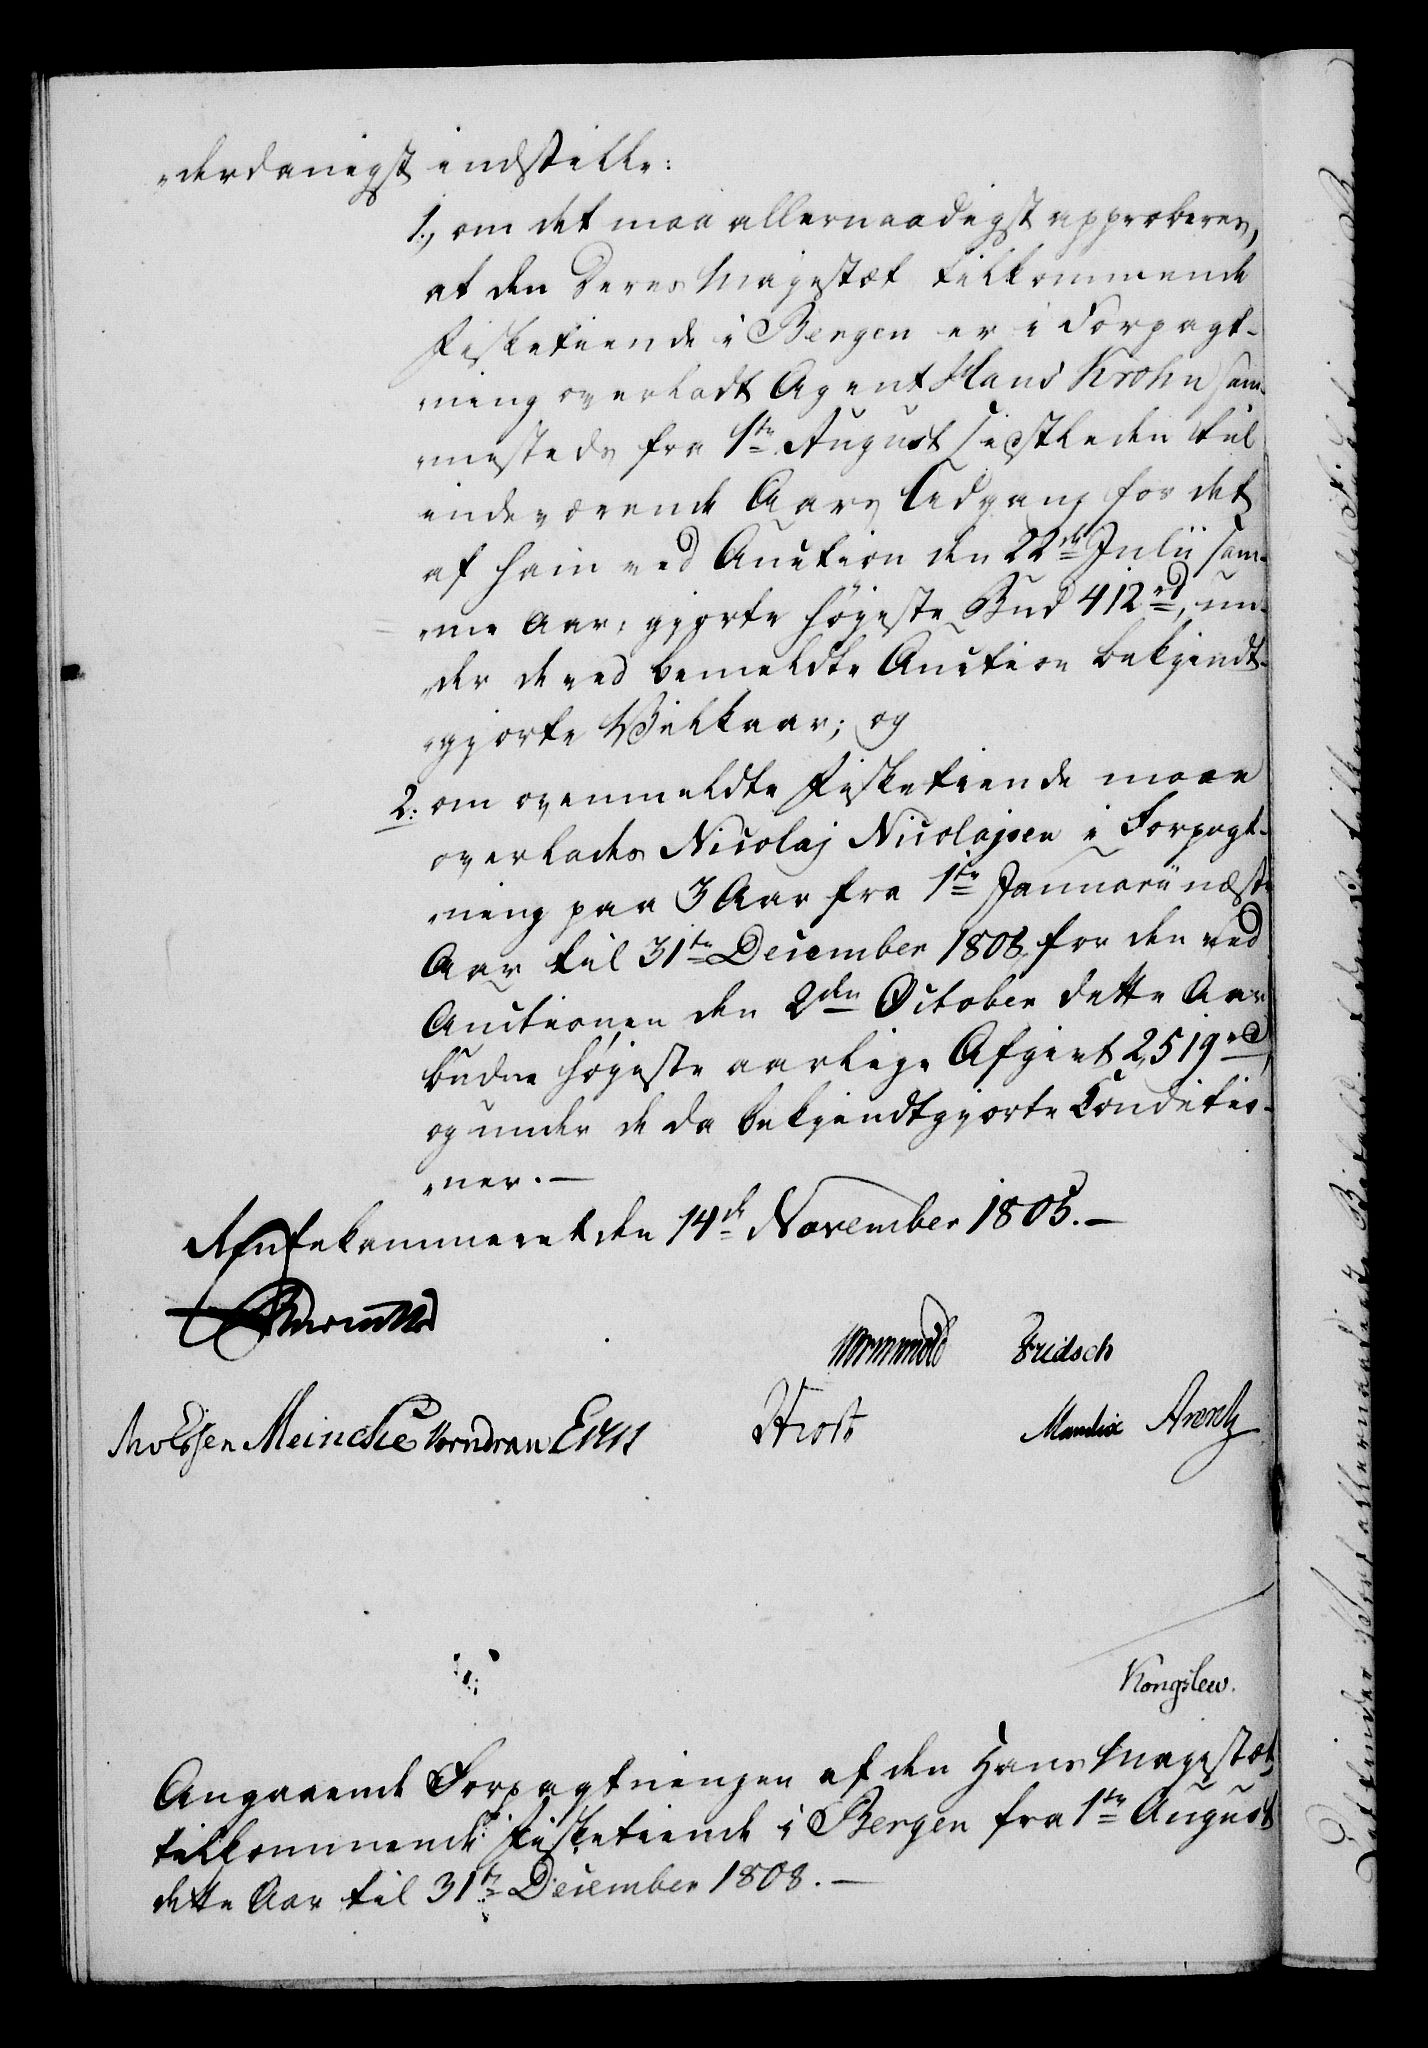 „derdanigst indstille:
1., om det maa allernaadigst approberes,
at den Deres Majestæt tilkommende
Fisketiende i Bergen er i Forpagt-
„ning overladt Agent Hans Krohn sam-
„mesteds fra 1ste August sidstleden til
indeværende Aars Udgang for det
af ham ved Auction den 22de Julii sam-
„me Aar, gjorte høyeste Bud 412 rd, un-
„der de ved bemeldte Auction bekjendt-
„gjorte Vilkaar; og
2: om ovenmeldte Fisketiende maae
overlades Nicolaj Nicolajsen i Forpagt-
„ning paa 3 Aar fra 1ste Januarii næste
Aar til 31te December 1808 for den ved
Auctionen den 2den October dette Aar
budne høyeste aarlige Afgivt 2,519 rd,
og under de da bekjendtgjorte Conditio-
„ner. —
Rentekammeret den 14de November 1805. —
Wormskiold Fridsch
Meincke Vorndran
Mandix Arentz
Kongslew.
Angaaende Forpagtningen af den Hans Majestæt
tilkommende Fisketiende i Bergen fra 1ste August
dette Aar til 31te December 1808. —